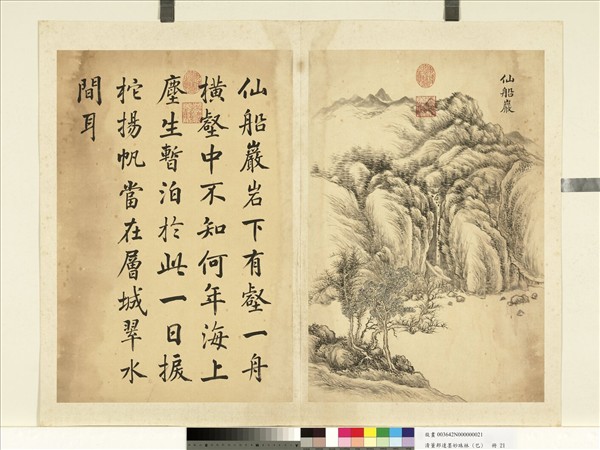 仙船巖
仙船巖岩下有壑一舟
橫壑中不知何年海上
塵生暫泊於此一日捩
柁揚帆當在層城翠水
間耳
故畫003642N000000021
清董邦達墨妙珠林（巳） 冊 21